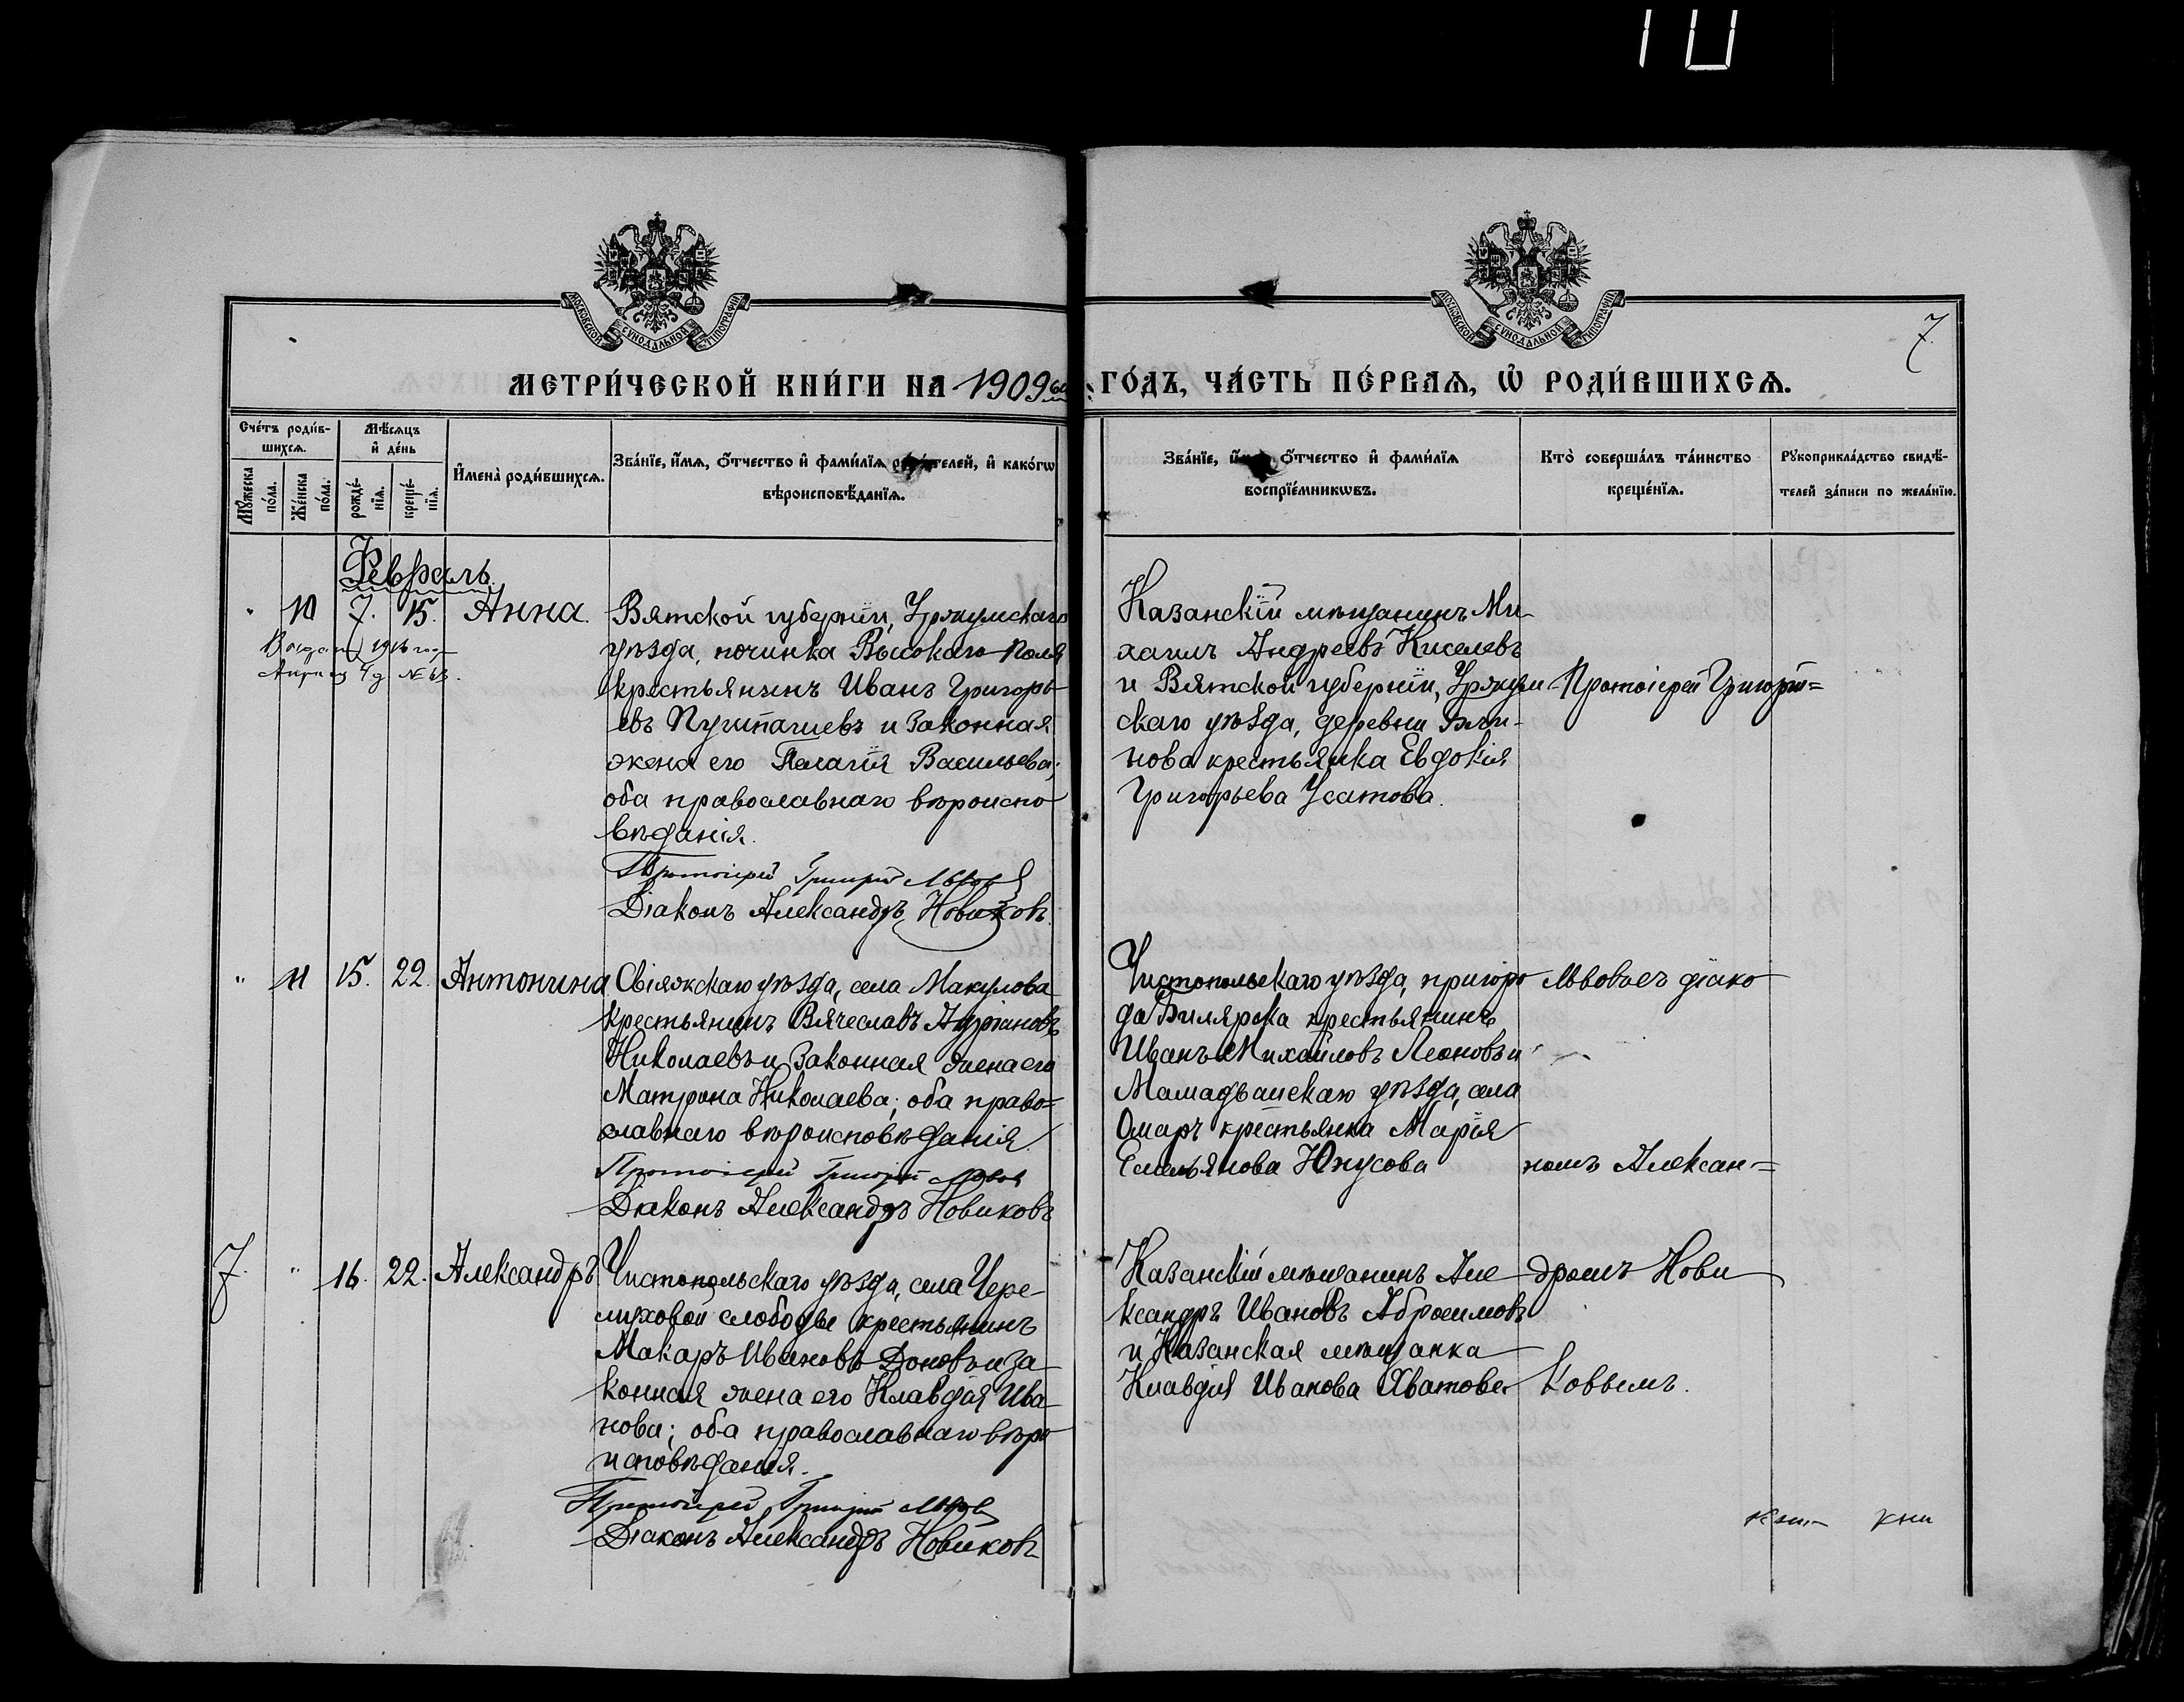 10
МОСКОВСКОЙ СѴНОДАЛЬНОЙ ТИПОГРАФІИ
МОСКОВСКОЙ СѴНОДАЛЬНОЙ ТИПОГРАФІИ
7.
МЕТРИ́ЧЕСКОЙ КНИ́ГИ НА 1909 ГО́ДЪ, ЧА́СТЬ ПЕ́РВАѦ, Ѽ РОДИ́ВШИХСѦ.
Сче́тъ роди́в-
шихсѧ.
Мѹ́жеска по́ла.
Же́нска по́ла.
Мѣ́сѧцъ
и҆ де́нь
рожде́-
нїѧ.
креще́-
нїѧ.
И҆мена̀ роди́вшихсѧ.
Зва́нїе, и҆́мѧ, ѻ҆́тчество и҆ фами́лїѧ роди́телей, и҆ како́гѡ
вѣроисповѣ́данїѧ.
Зва́нїе, и҆́мѧ, ѻ҆́тчество и҆ фами́лїѧ
воспрїе́мникѡвъ.
Кто̀ соверша́лъ та́инство
креще́нїѧ.
Рѹкоприкла́дство свидѣ́-
телей за́писи по жела́нїю.
Февраль.
" 10 7. 15. Анна.
Вятской губерніи, Уржумскаго
уѣзда, починка Высокаго Поля
крестьянинъ Иванъ Григорь-
евъ и законная
жена его Пелагія Васильева;
оба православнаго вѣроиспо-
вѣданія.
Протоіерей Григорій Львовъ
Діаконъ Александръ Новиковъ.
Казанскій мѣщанинъ Ми-
хаилъ Андреевъ Киселевъ
и Вятской губерніи, Уржум-
скаго уѣзда, деревни
крестьянка Евдокія
Григорьева Усатова.
Протоіерей Григорій=
" 11 15. 22. Антонина
Свіяжскаго уѣзда, села Макулова
крестьянинъ Вячеславъ Андріановъ
Николаевъ и законная жена его
Матрона Николаева; оба право=
славнаго вѣроисповѣданія.
Протоіерей Григорій Львовъ
Діаконъ Александръ Новиковъ
Чистопольскаго уѣзда, пригоро-
да Билярска крестьянинъ
Иванъ Михайловъ Леоновъ и
Мамадышскаго уѣзда, села
Омаръ крестьянка Марія
Емельянова Юнусова
Львовъ съ діако-
номъ Алексан=
7. " 16. 22. Александръ
Чистопольскаго уѣзда, села Чере-
муховой слободы крестьянинъ
Макаръ Ивановъ Доновъ и за-
конная жена его Клавдія Ива-
нова; оба православнаго вѣро-
исповѣданія.
Протоіерей Григорій Львовъ
Діаконъ Александръ Новиковъ
Казанскій мѣщанинъ Але-
ксандръ Ивановъ Абросимовъ
и Казанская мѣщанка
Клавдія Иванова Хватова
дромъ Нови-
ковымъ.